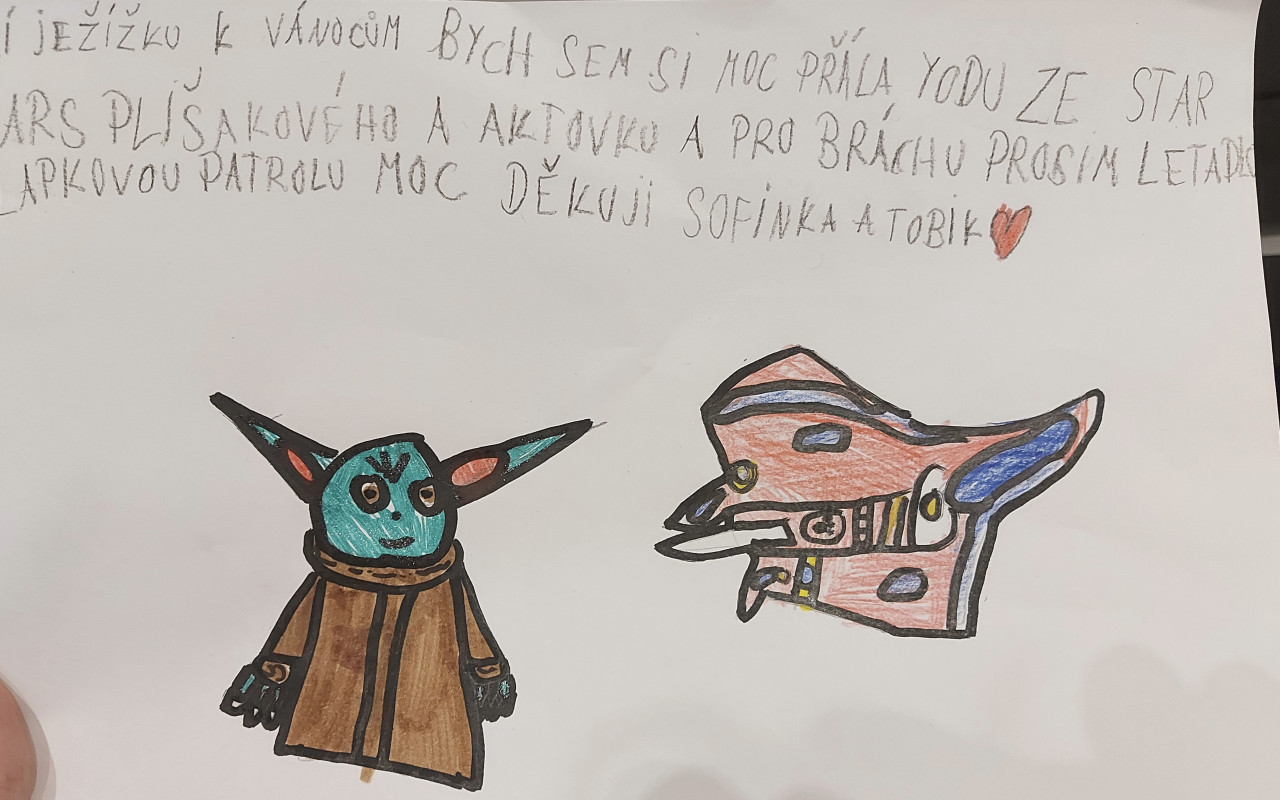 Í JEŽÍŽKU K VÁNOCŮM BYCH SEM SI MOC PŘÁLA YODU ZE STAR
ARS PLÍŠAKOVÉHO A AKTOVKU A PRO BRÁCHU PROSIM LETADLO
LAPKOVOU PATROLU MOC DĚKUJI SOFINKA A TOBIK